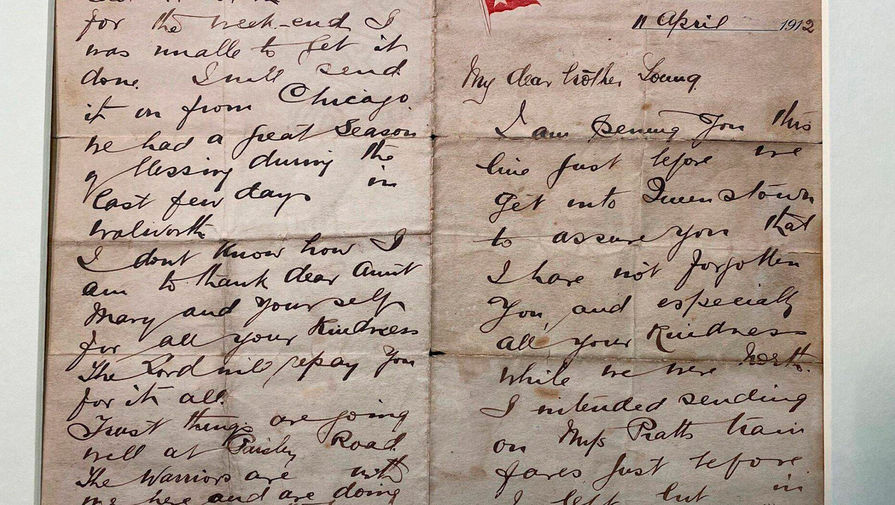 11 April 1912
My dear brother Young
I am penning you this
line just before we
get into Queenstown
to assure you that
I have not forgotten
you, and especially
all your kindness
while we were North.
I intended sending
on Miss Pratts train
fares just before
I left but in
for the week-end I
was unable to get it
done. I will send
it on from Chicago.
We had a great season
of blessing during the
last few days in
Walworth.
I dont know how I
am to thank dear Aunt
Mary and yourself
for all your kindness
The Lord will repay you
for it all.
Trust things are going
well at Paisley Road.
The Warriors are with
me here and are doing